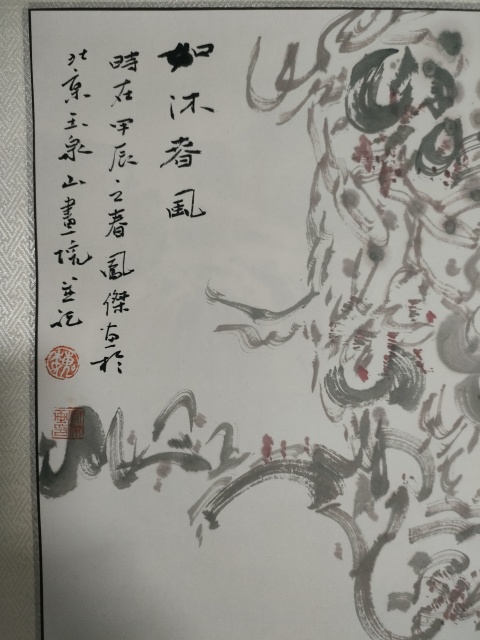 如沐春風
時在甲辰之春鳳傑写於
北京玉泉山畫院並記